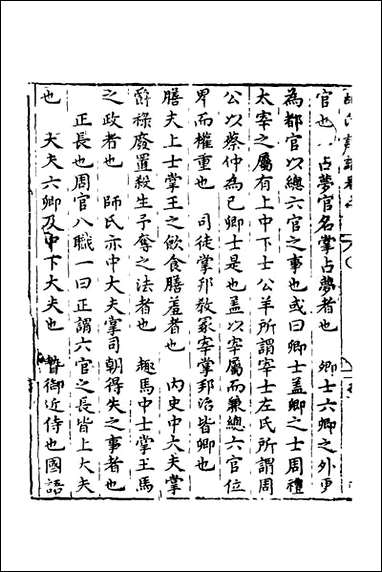 官也　占夢官名掌占夢者也　卿士六卿之外更
為都官以總六官之事也或曰卿士蓋卿之士周禮
太宰之屬有上中下士公羊所謂宰士左氏所謂周
公以蔡仲為己卿士是也蓋以宰屬而兼總六官位
卑而權重也　司徒掌邦教冢宰掌邦治皆卿也
膳夫上士掌王之飲食膳羞者也　內史中大夫掌
爵祿廢置殺生予奪之法者也　趣馬中士掌王馬
之政者也　師氏亦中大夫掌司朝得失之事者也
正長也周官八職一曰正謂六官之長皆上大夫
也　大夫六卿及中下大夫也　暬御近侍也國語